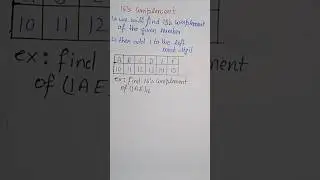 16's Complement
↳ we will find 15's complement
of the given number
↳ then add 1 to the left
most digit
A B C D E F
10 11 12 13 14 15
ex: Find 16's complement
of (1AE)16